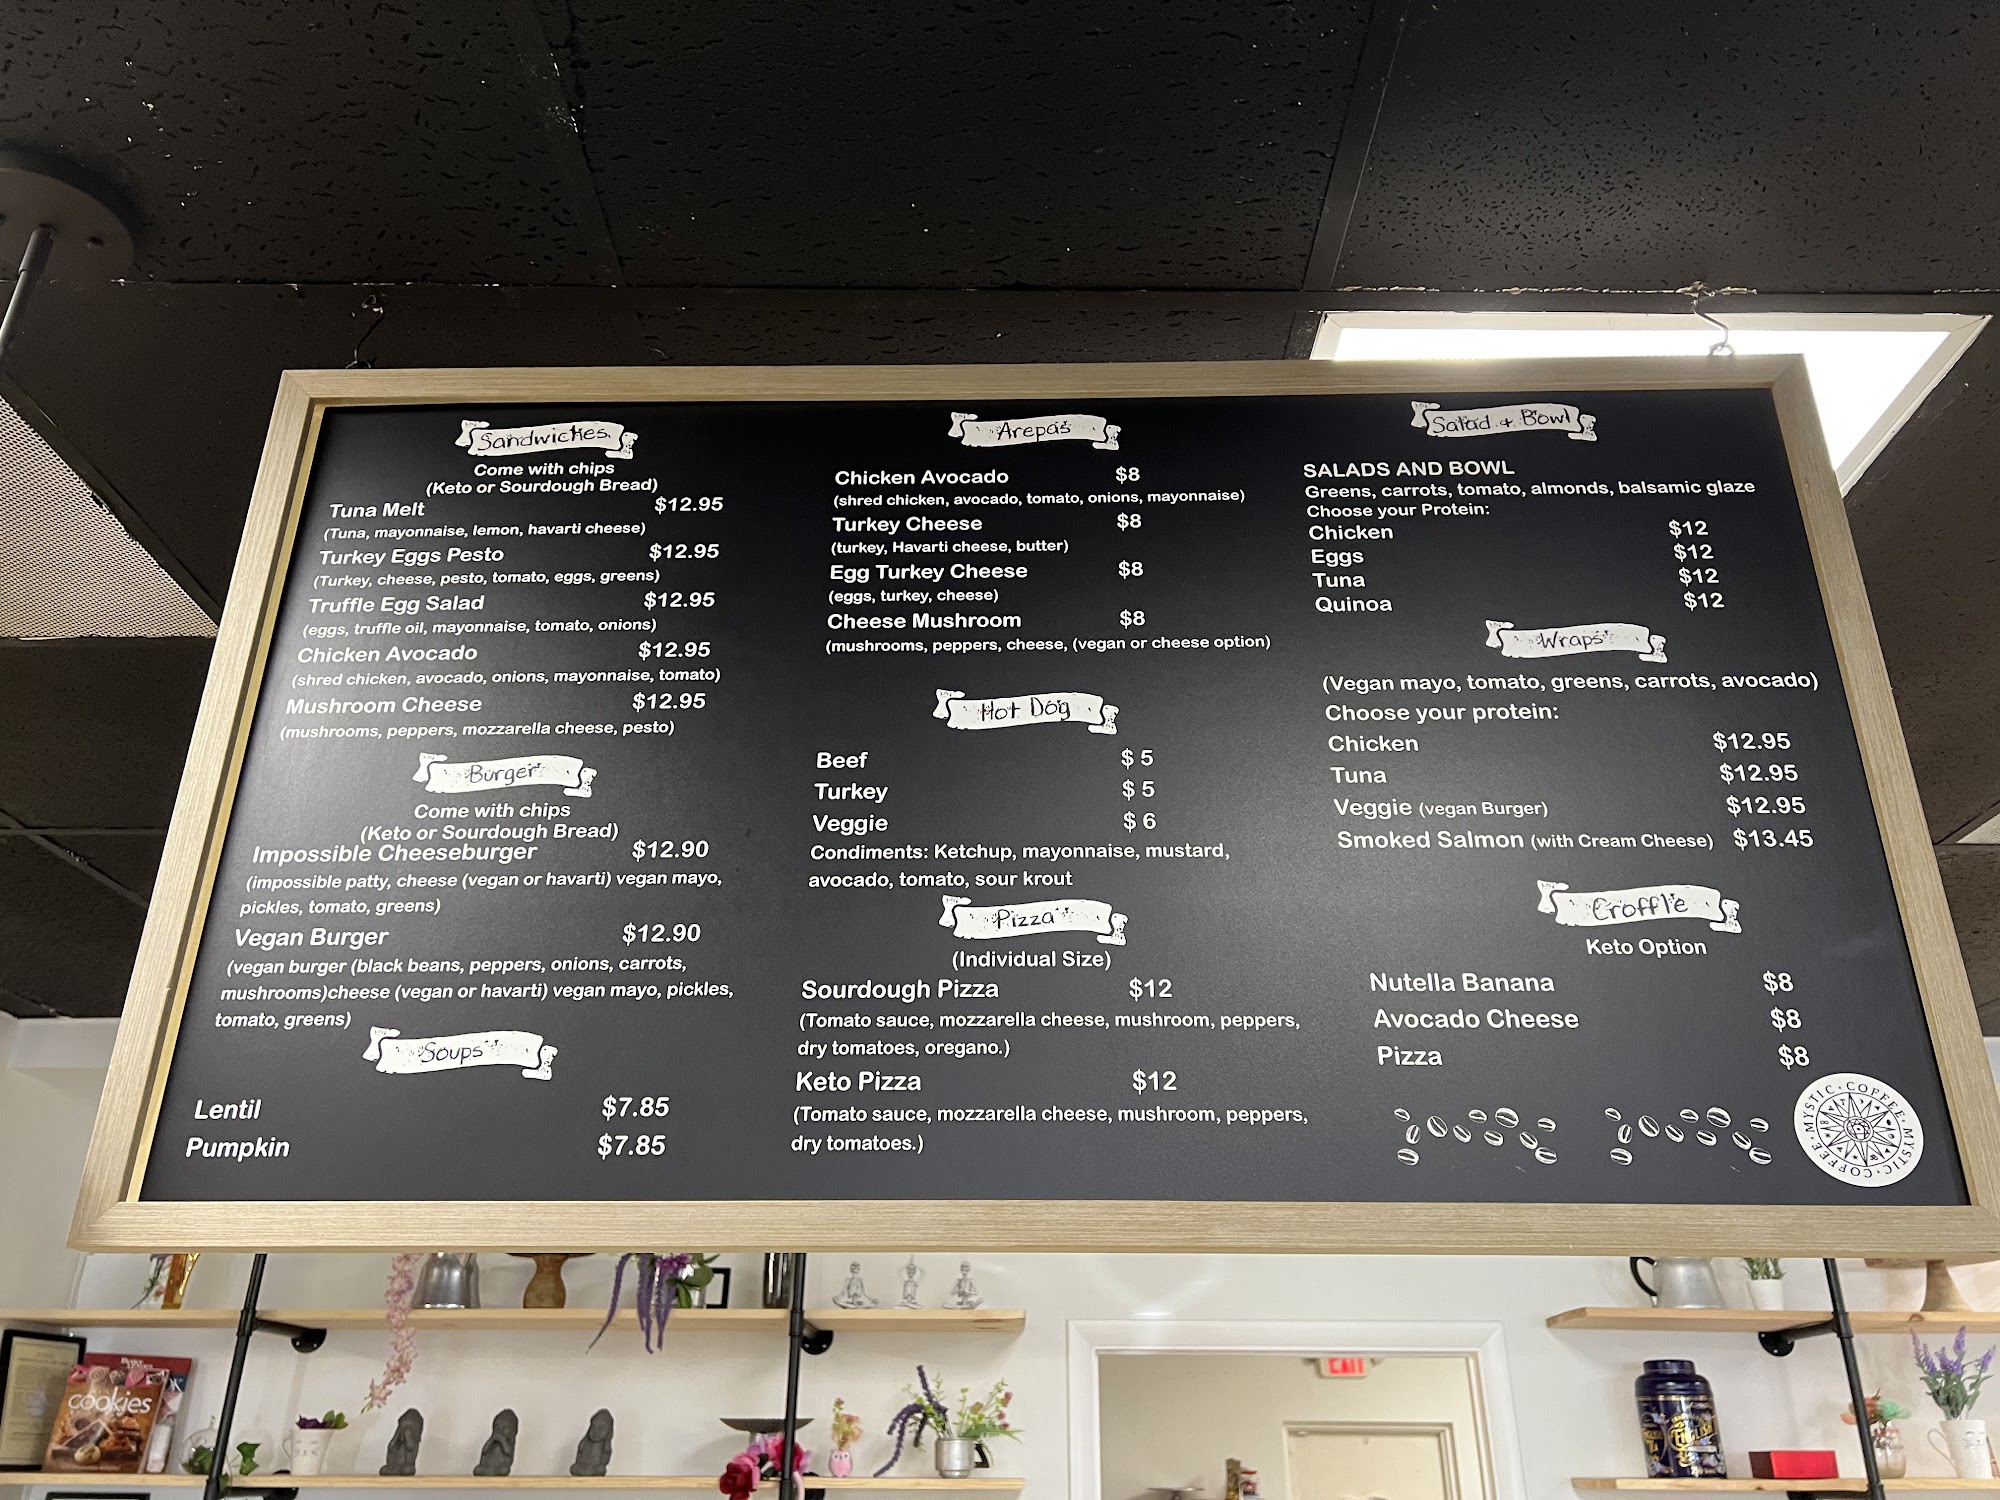 Sandwiches
Come with chips
(Keto or Sourdough Bread)
Tuna Melt $12.95
(Tuna, mayonnaise, lemon, havarti cheese)
Turkey Eggs Pesto $12.95
(Turkey, cheese, pesto, tomato, eggs, greens)
Truffle Egg Salad $12.95
(eggs, truffle oil, mayonnaise, tomato, onions)
Chicken Avocado $12.95
(shred chicken, avocado, onions, mayonnaise, tomato)
Mushroom Cheese $12.95
(mushrooms, peppers, mozzarella cheese, pesto)
Burger
Come with chips
(Keto or Sourdough Bread)
Impossible Cheeseburger $12.90
(impossible patty, cheese (vegan or havarti) vegan mayo,
pickles, tomato, greens)
Vegan Burger $12.90
(vegan burger (black beans, peppers, onions, carrots,
mushrooms)cheese (vegan or havarti) vegan mayo, pickles,
tomato, greens)
Soups
Lentil $7.85
Pumpkin $7.85
Arepas
Chicken Avocado $8
(shred chicken, avocado, tomato, onions, mayonnaise)
Turkey Cheese $8
(turkey, Havarti cheese, butter)
Egg Turkey Cheese $8
(eggs, turkey, cheese)
Cheese Mushroom $8
(mushrooms, peppers, cheese, (vegan or cheese option)
Hot Dog
Beef $ 5
Turkey $ 5
Veggie $ 6
Condiments: Ketchup, mayonnaise, mustard,
avocado, tomato, sour krout
Pizza
(Individual Size)
Sourdough Pizza $12
(Tomato sauce, mozzarella cheese, mushroom, peppers,
dry tomatoes, oregano.)
Keto Pizza $12
(Tomato sauce, mozzarella cheese, mushroom, peppers,
dry tomatoes.)
Salad & Bowl
SALADS AND BOWL
Greens, carrots, tomato, almonds, balsamic glaze
Choose your Protein:
Chicken $12
Eggs $12
Tuna $12
Quinoa $12
Wraps
(Vegan mayo, tomato, greens, carrots, avocado)
Choose your protein:
Chicken $12.95
Tuna $12.95
Veggie (vegan Burger) $12.95
Smoked Salmon (with Cream Cheese) $13.45
Croffle
Keto Option
Nutella Banana $8
Avocado Cheese $8
Pizza $8
MYSTIC · COFFEE · MYSTIC · COFFEE ·
cookies
EXIT